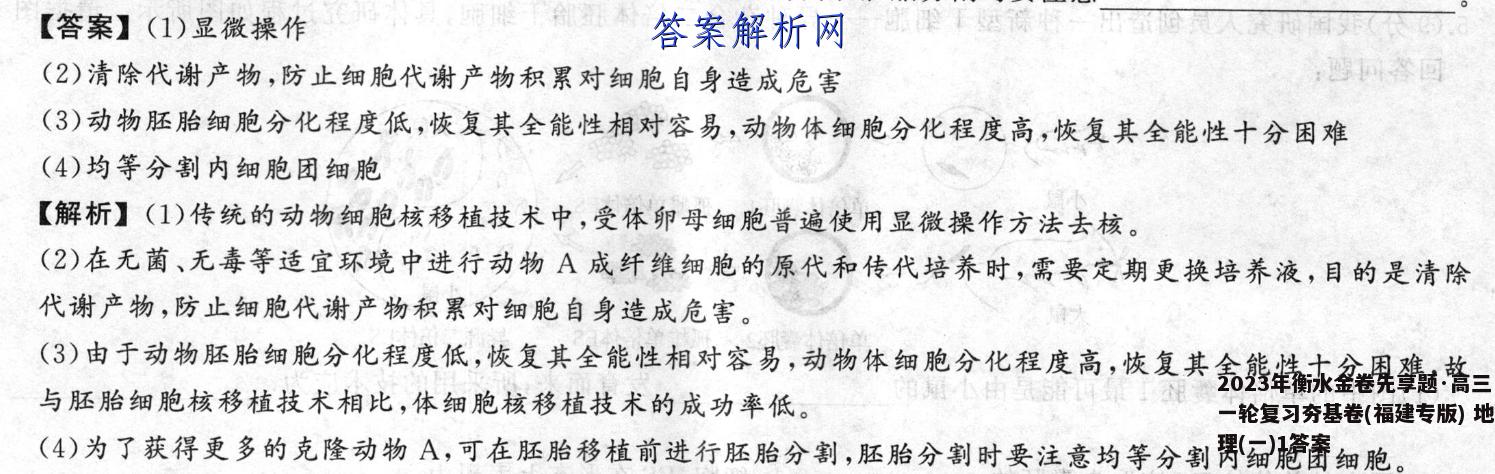 答案解析网
【答案】(1)显微操作
(2)清除代谢产物,防止细胞代谢产物积累对细胞自身造成危害
(3)动物胚胎细胞分化程度低,恢复其全能性相对容易,动物体细胞分化程度高,恢复其全能性十分困难
(4)均等分割内细胞团细胞
【解析】(1)传统的动物细胞核移植技术中,受体卵母细胞普遍使用显微操作方法去核。
(2)在无菌、无毒等适宜环境中进行动物 A 成纤维细胞的原代和传代培养时,需要定期更换培养液,目的是清除
代谢产物,防止细胞代谢产物积累对细胞自身造成危害。
(3)由于动物胚胎细胞分化程度低,恢复其全能性相对容易,动物体细胞分化程度高,恢复其全能性十分困难,故
与胚胎细胞核移植技术相比,体细胞核移植技术的成功率低。
(4)为了获得更多的克隆动物 A,可在胚胎移植前进行胚胎分割,胚胎分割时要注意均等分割内细胞团细胞。
2023年衡水金卷先享题·高三
一轮复习夯基卷(福建专版) 地
理(一)1答案